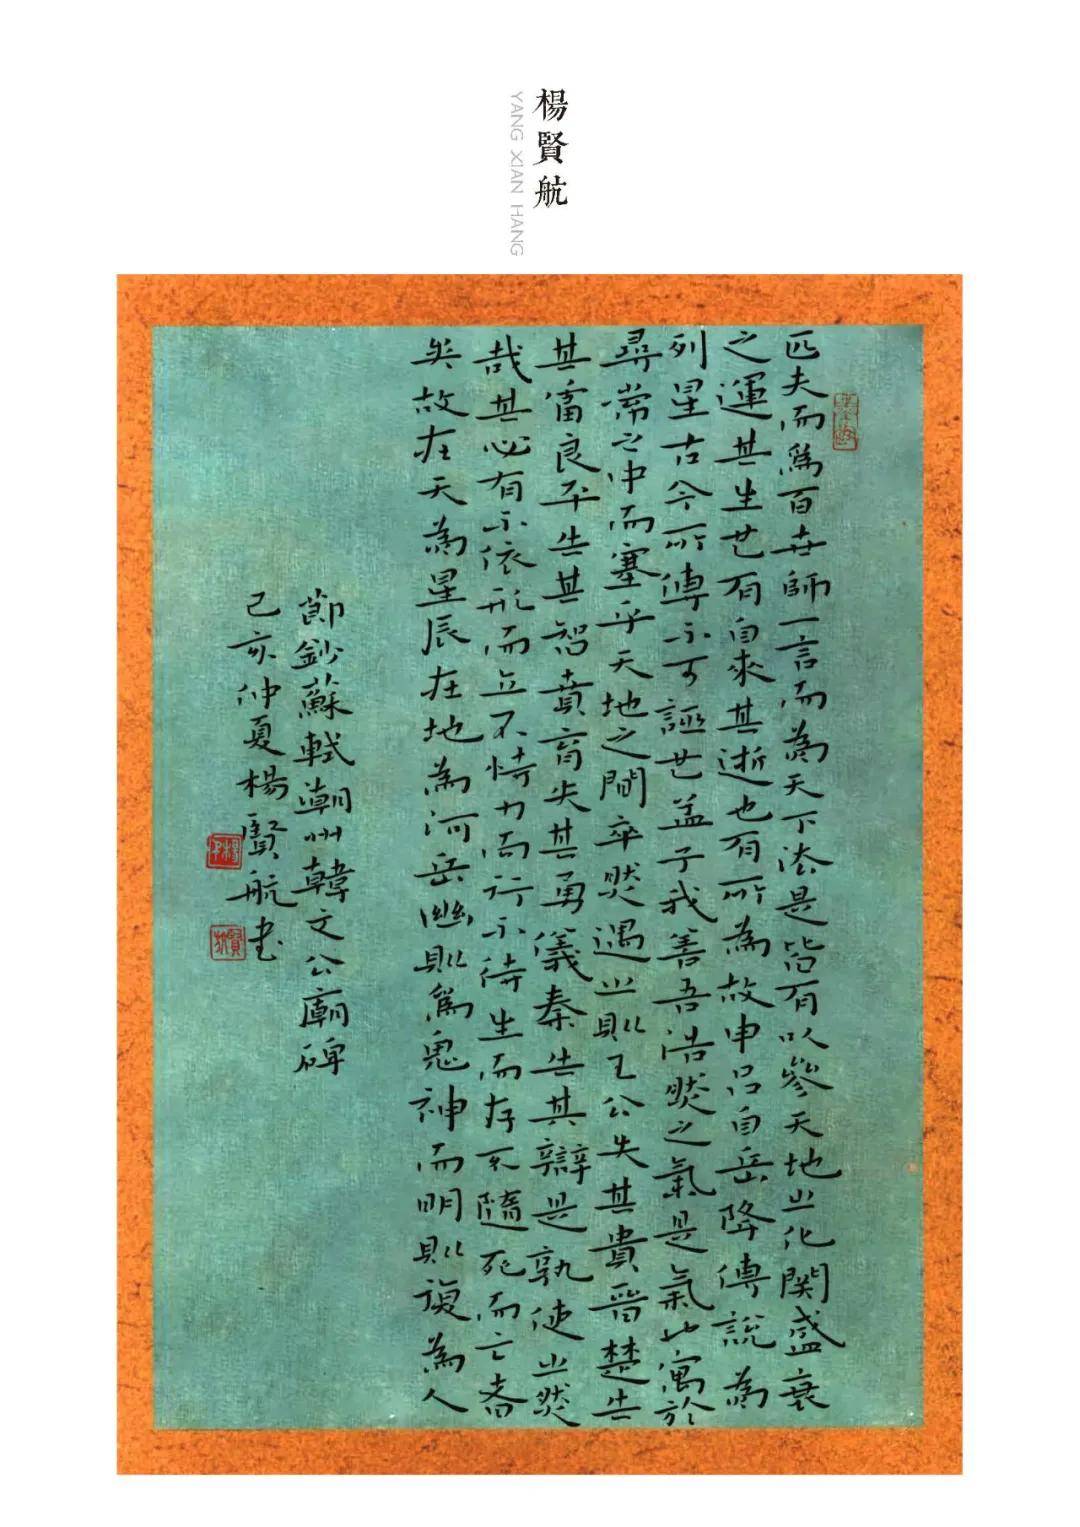 楊賢航
YANG XIAN HANG
匹夫而為百世師一言而為天下法是皆有以參天地之化関盛衰
之運其生也有自來其逝也有所為故申呂自岳降傅說為
列星古今所傳不可誣也孟子我善吾浩然之氣是氣也寓於
尋常之中而塞乎天地之間卒然遇之則王公失其貴晉楚失
其富良平失其智賁育失其勇儀秦失其辯是孰使之然
哉其必有不依形而立不恃力而行不待生而存不隨死而亡者
矣故在天為星辰在地為河岳幽則為鬼神而明則復為人
節鈔蘇軾潮州韓文公廟碑
己亥仲夏楊賢航書